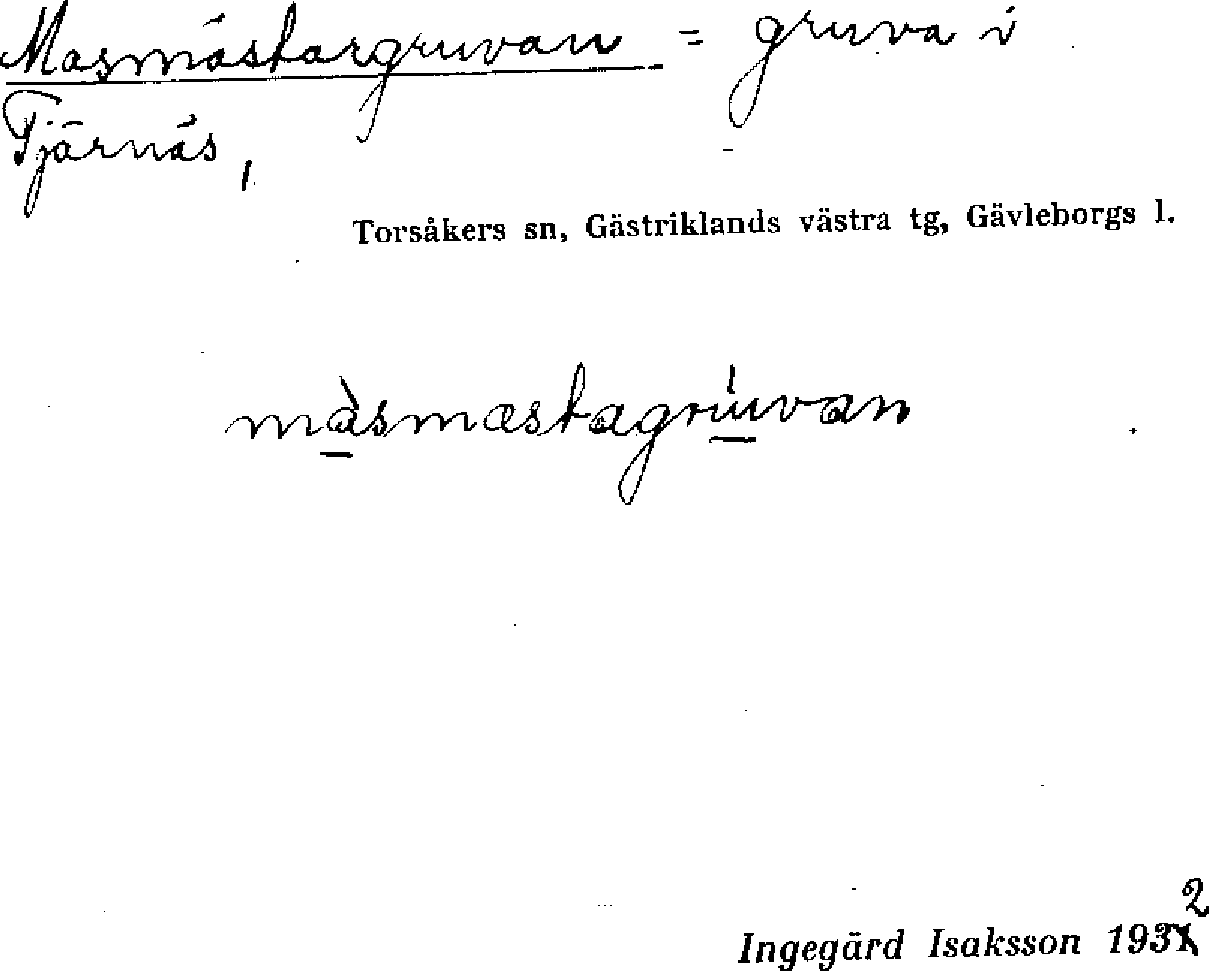 Masmästargruvan = gruva i
Tjärnäs,
Torsåkers sn, Gästriklands västra tg, Gävleborgs l.
màsmæstagrúvan
Ingegärd Isaksson 1932